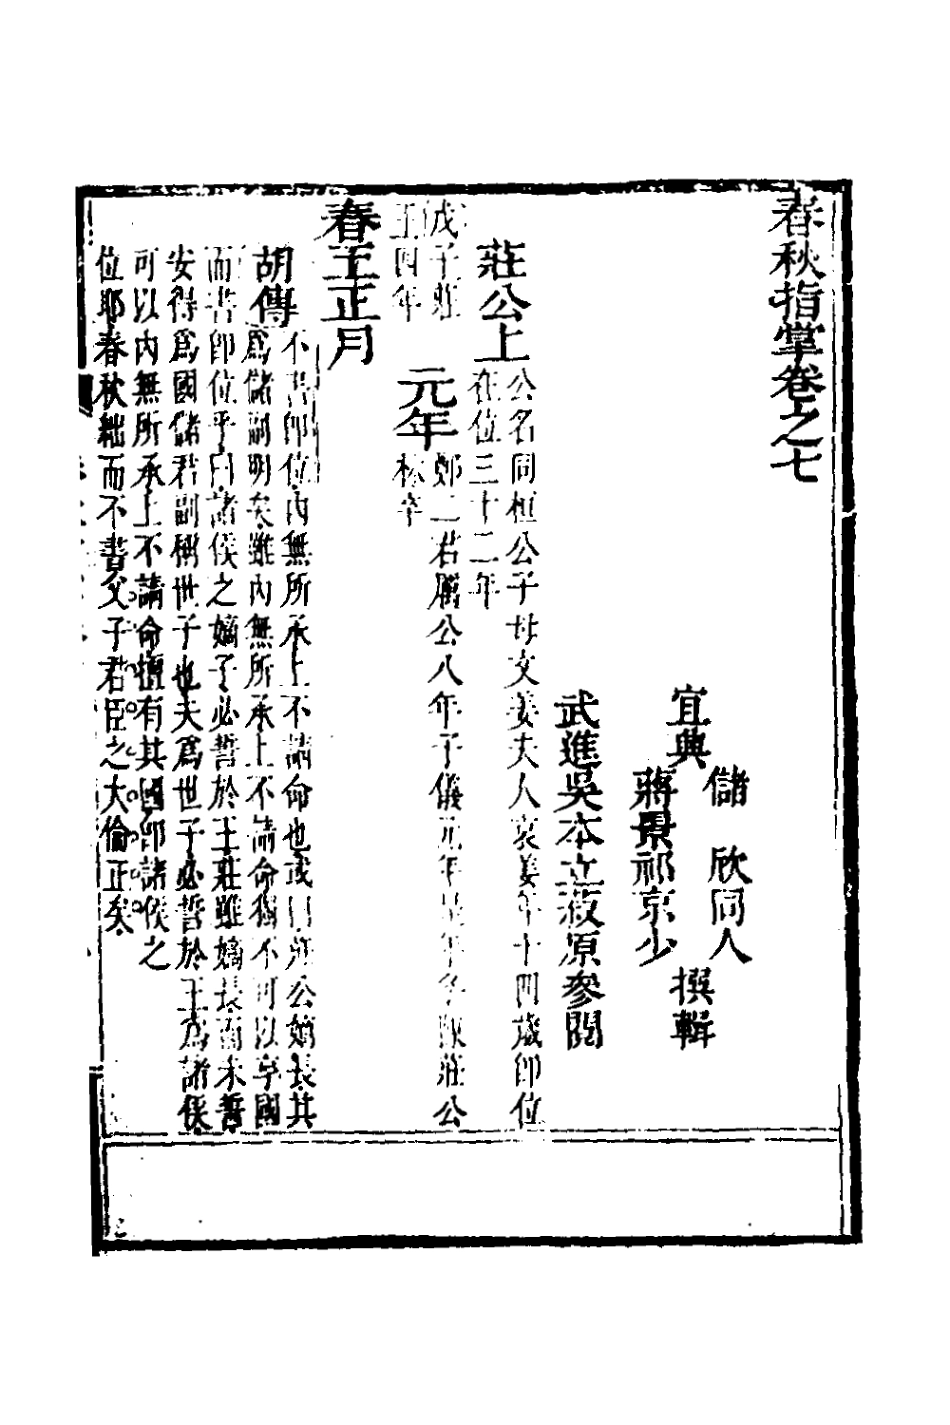 春秋指掌卷之七
宜興
儲　欣同人
蔣景祁京少
撰輯
武進吳本立菽原參閱
莊公上
公名同桓公子母文姜夫人哀姜年十四歲即位
在位三十二年
戊子莊
王四年
元年
鄭二君厲公八年子儀元年是年冬陳莊公
林卒
春王正月
胡傳
不書即位內無所承上不請命也或曰莊公嫡長其
為儲副明矣雖內無所承上不請命獨不可以享國
而書即位乎曰諸侯之嫡子必誓於王莊雖嫡長而未誓
安得為國儲君副稱世子也夫為世子必誓於王為諸侯
可以內無所承上不請命擅有其國即諸侯之
位耶春秋絀而不書父子君臣之大倫正矣